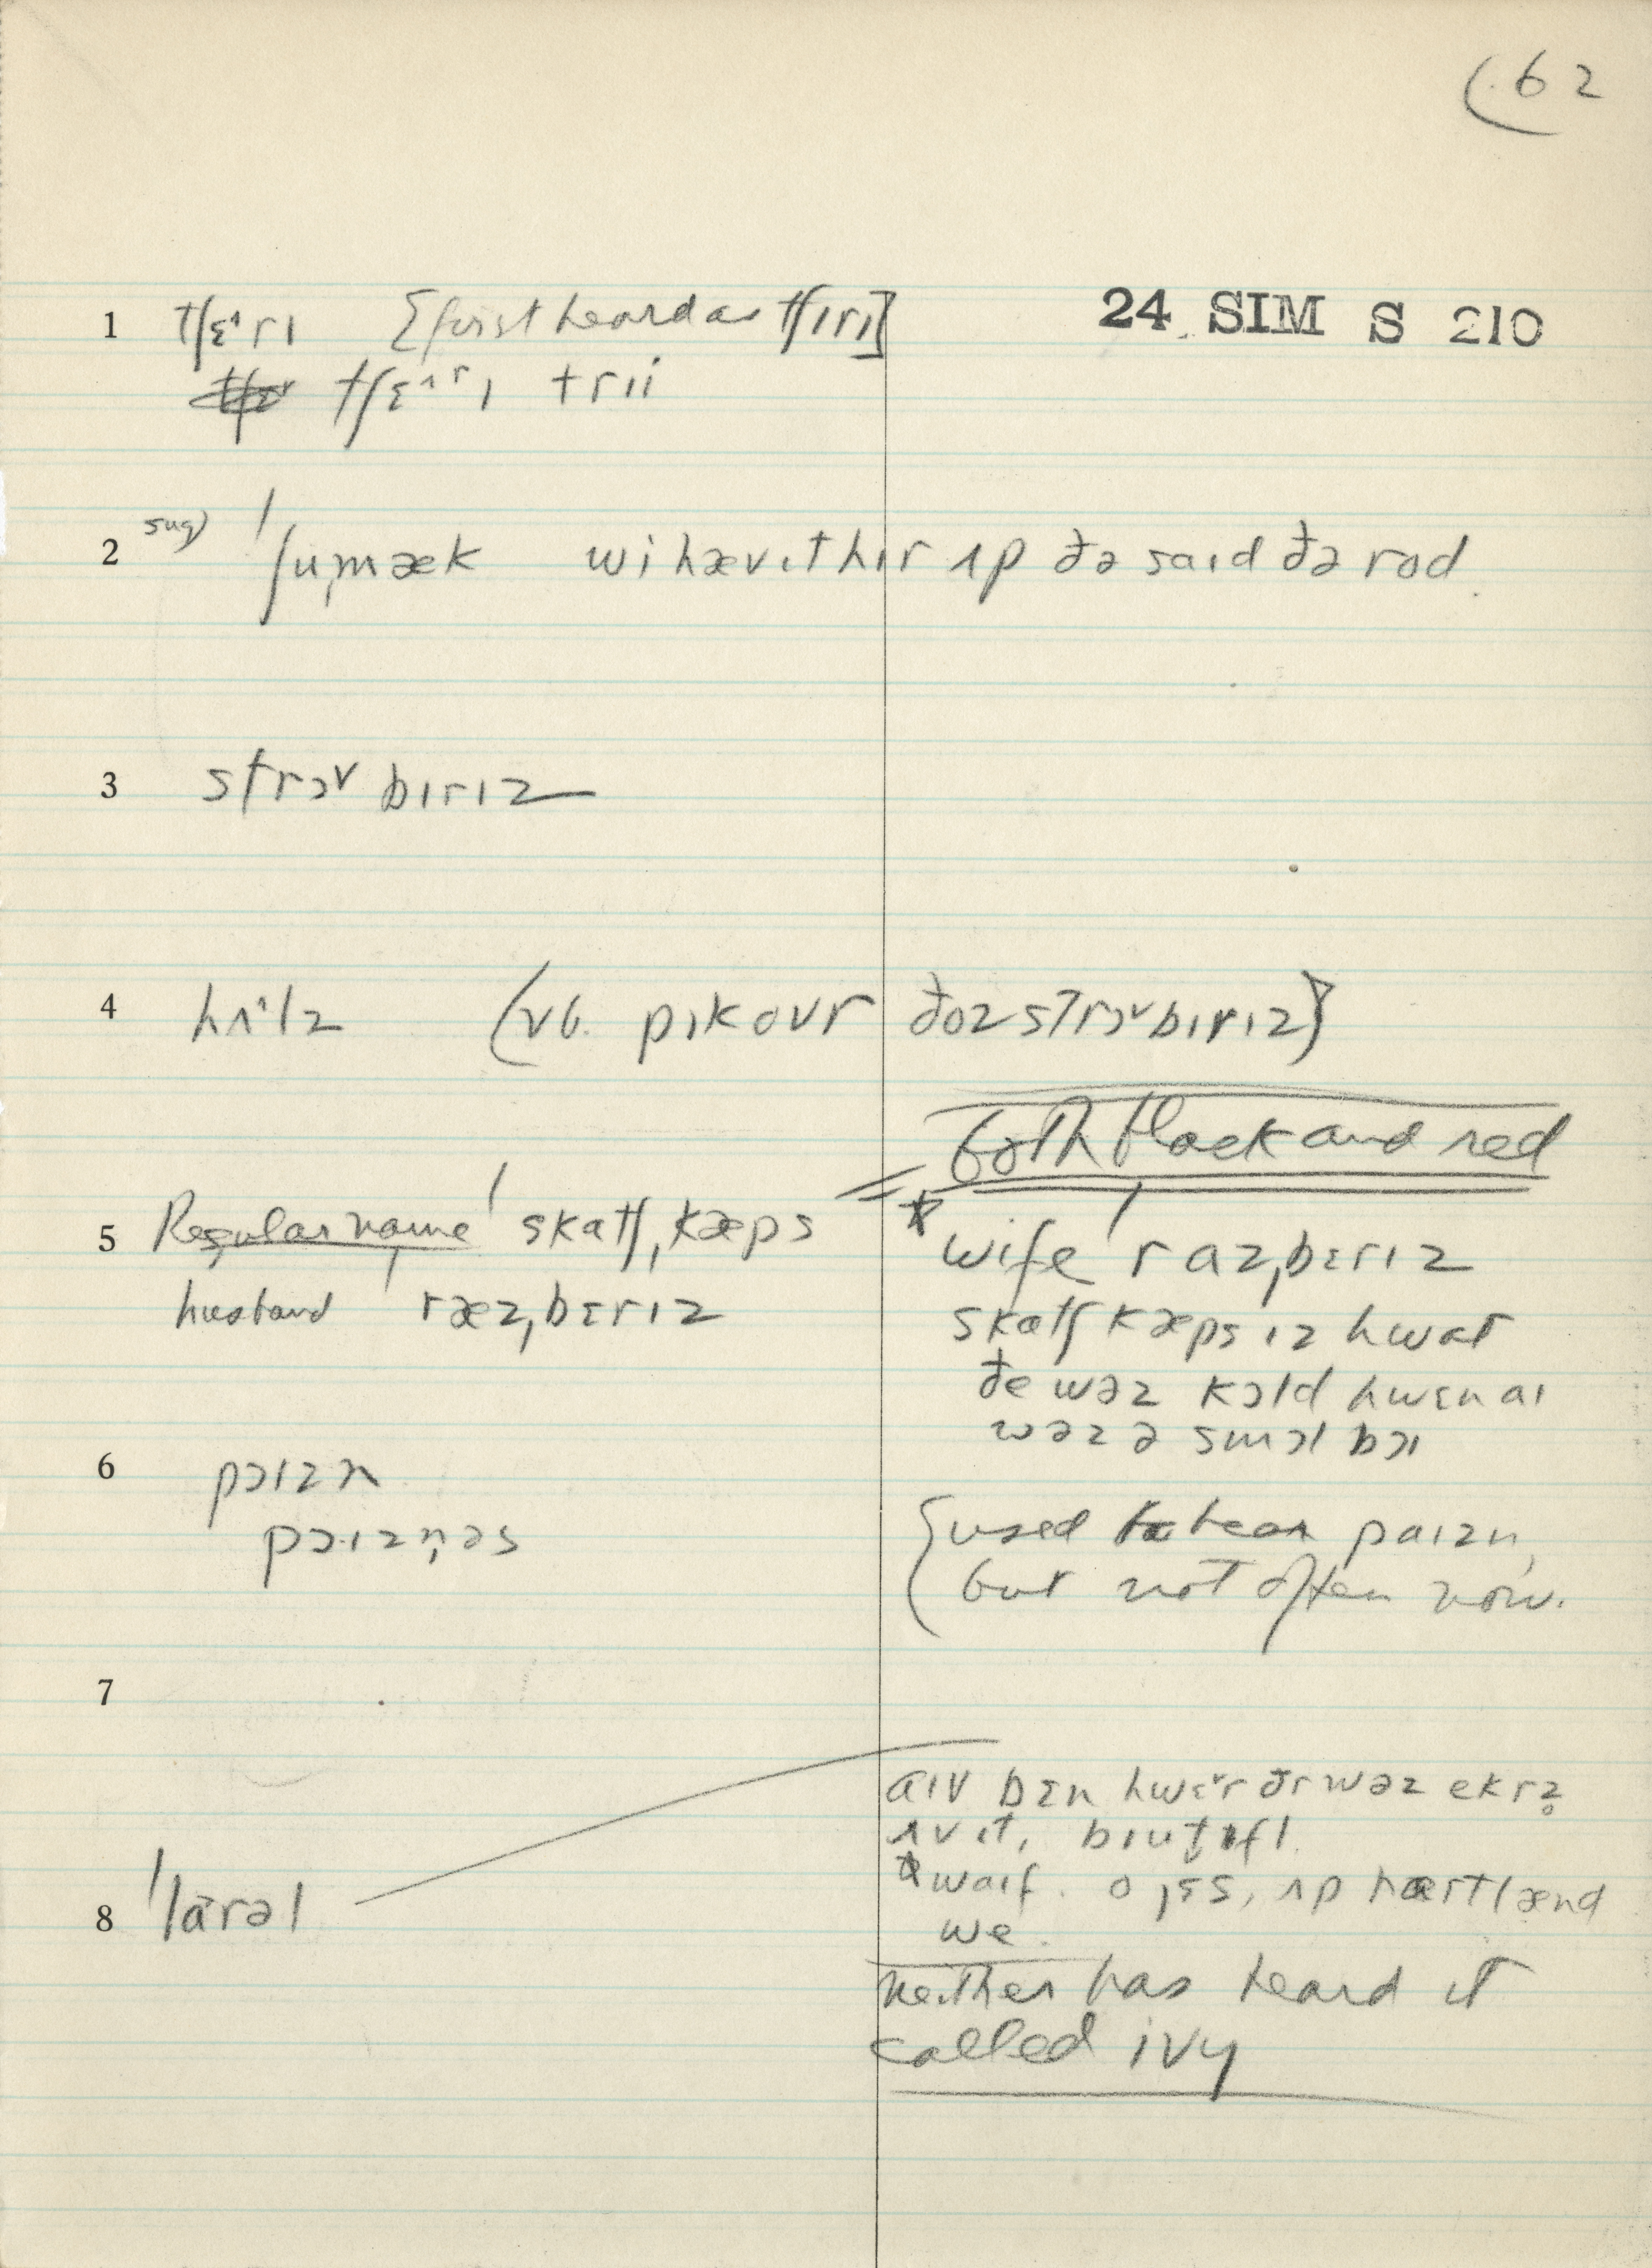 62
24 SIM S 210
1 tʃɛ˄rɪ [first heard as tʃɪrɪ]
tʃɛ˄rɪ trii
2 sug) ˈʃuˌmæk wi hæv ɪt hɪr ʌp ðə saɪd ðə rod.
3 strɔ˅bɪrɪz
4 hʌ˄lz (vb. pɪk ovr ðoz strɔ˅bɪrɪz)
both black and red
5 Regular name ˈskatʃˌkæps = * wife ˈrazˌbɛrɪz
husband ˈræzˌbɛrɪz
skatʃkæps ɪz hwat
ðe wəz kɔld hwɛn aɪ
wəz ə smɔl bɔɪ
6 pɔɪzn
pɔɪzn̩əs
{used to hear paɪzn,
but not often now.
7
aɪv bɪn hwɛ˅r ðr wəz ekrz
ʌv ɪt, bɪut̬ɪfl.
8 ˈlarəl
* waɪf. o jɛs, ʌp hartlænd
we.
neither has heard it
called ivy